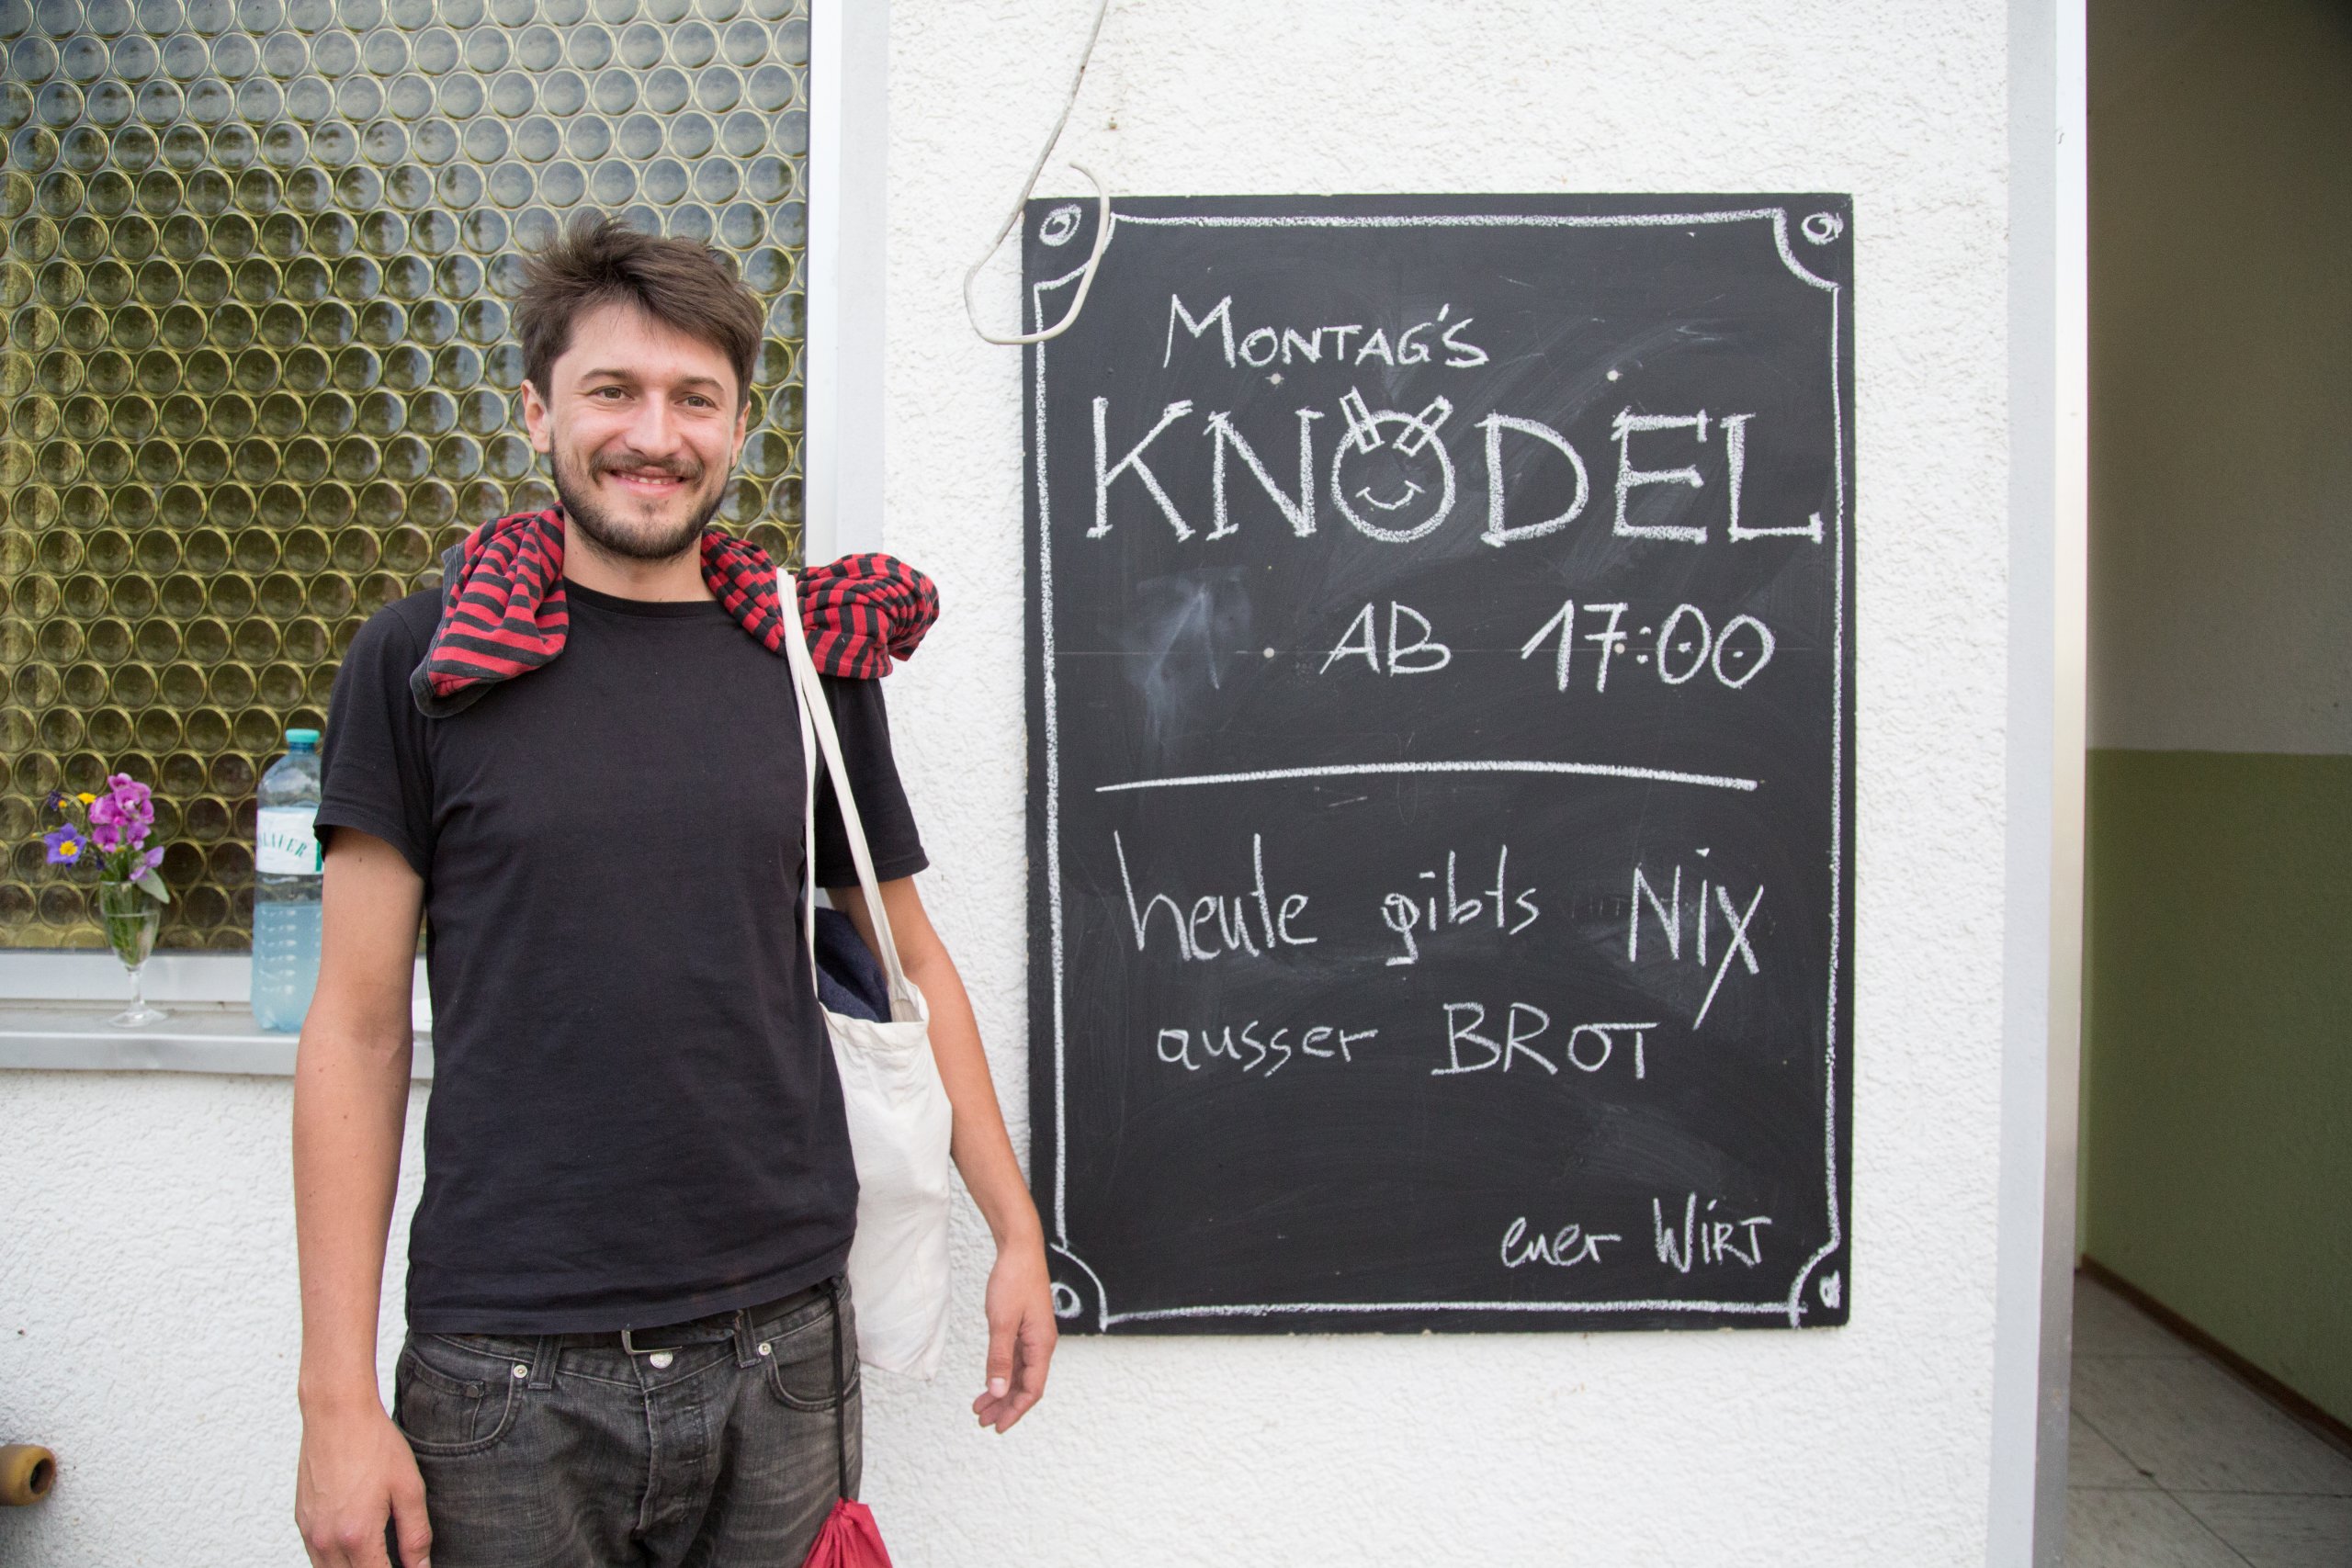 MONTAG'S
KNÖDEL
AB 17:00
heute gibts Nix
ausser BROT
euer WiRT